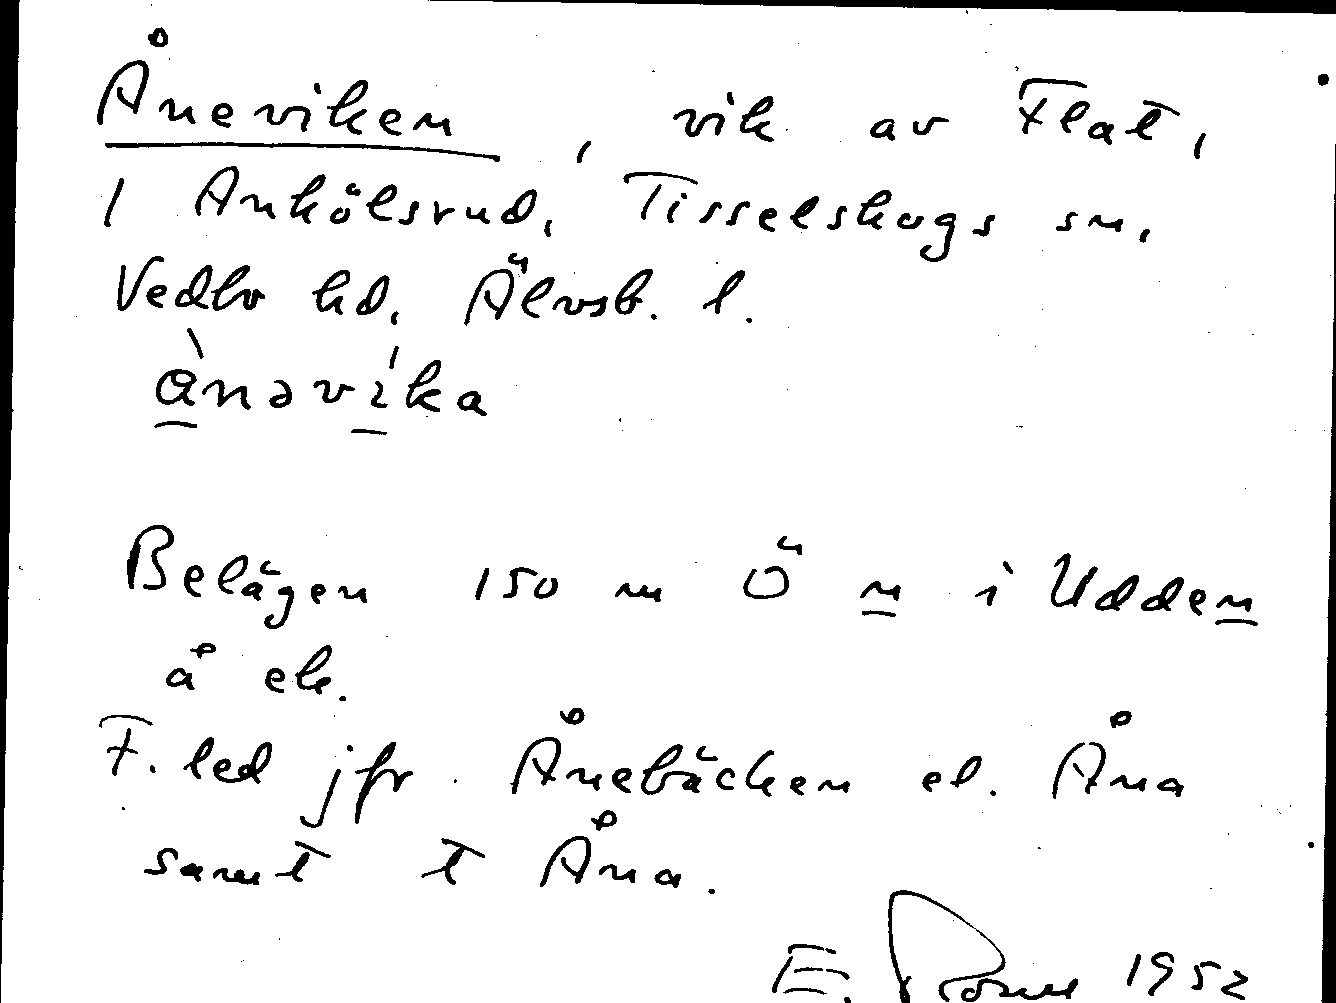 Åneviken, vik av Flat,
1 Ankölsrud, Tisselskogs sn,
Vedbo hd, Älvsb. l.
ànəvíka
Belägen 150 m Ö n i Udden
å ek.
F. led jfr. Ånebäcken el. Åna
samt t Åna.
E. 1952